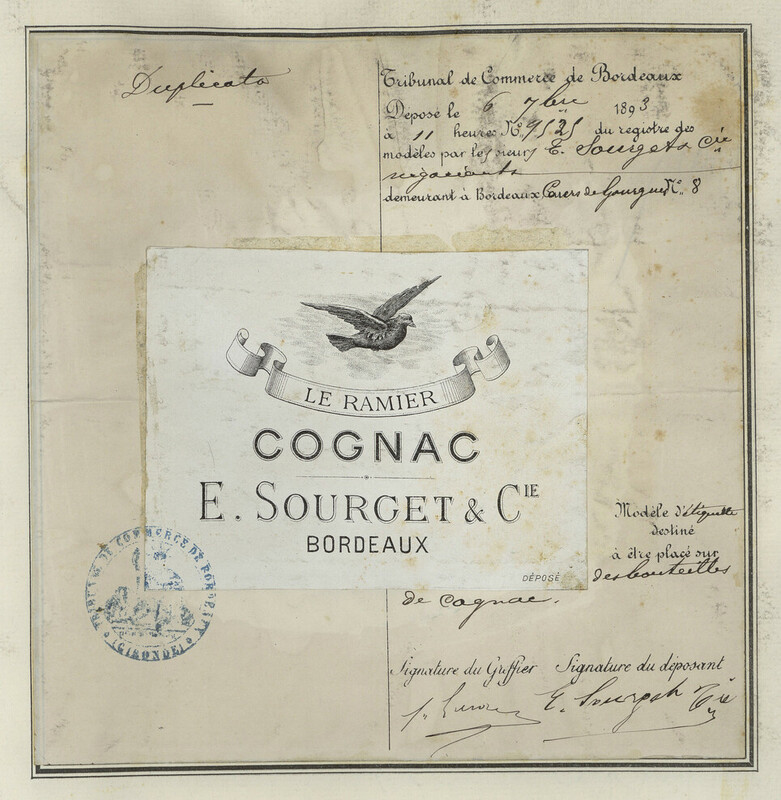 Duplicata
Tribunal de Commerce de Bordeaux
Déposé le 6 7bre 1893
à 11 heures N° 9525 du registre des
modèles par les sieurs E. Sourget & Cie
négociants
demeurant à Bordeaux Cours de Gourgues N° 8
LE RAMIER
COGNAC
E. SOURGET & CIE
BORDEAUX
DÉPOSÉ
Modèle d'étiquette
destiné
à être placé sur
des bouteilles
de cognac.
TRIBUNAL DE COMMERCE DE BORDEAUX
(GIRONDE)
Signature du Greffier Signature du déposant
E. Sourget & Cie